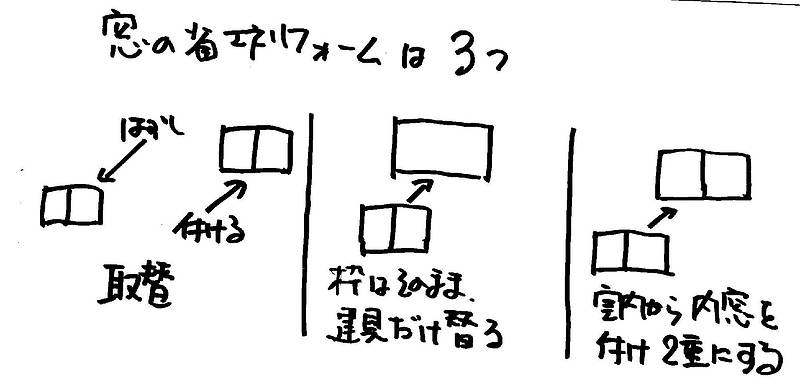 窓の省エネリフォームは3つ
はずし
付ける
取替
枠はそのまま、
建具だけ替る
室内から内窓を
付け2重にする